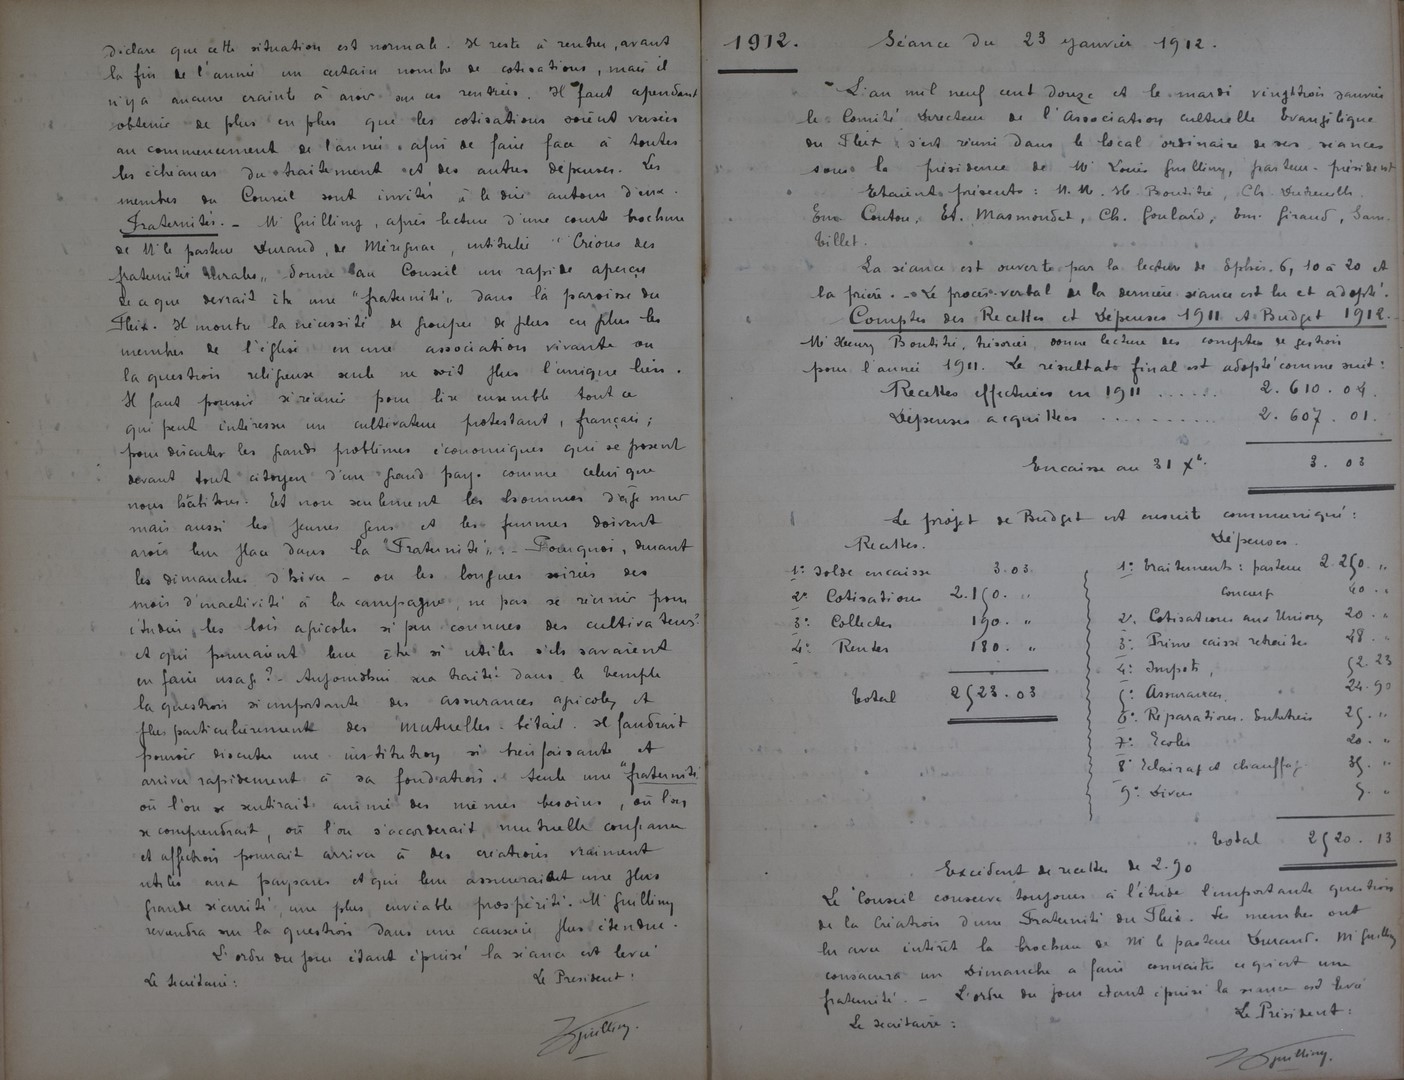 Déclare que cette situation est normale. Il reste à rentrer, avant
la fin de l'année un certain nombre de cotisations, mais il
n'y a aucune crainte à avoir sur ces rentrées. Il faut cependant
obtenir de plus en plus que les cotisations soient versées
au commencement de l'année afin de faire face à toutes
les échéances du traitement et des autres dépenses. Les
membres du Conseil sont invités à le dire autour d'eux.
Fraternités. - Mr Guilliny, après lecture d'une courte brochure
de Mr le pasteur Durand, de Mérignac, intitulée "Créons des
fraternités rurales" donne au Conseil un rapide aperçu
de ce que devrait être une "fraternité" dans la paroisse du
Fleix. Il montre la nécessité de grouper de plus en plus les
membres de l'église en une association vivante ou
la question religieuse seule ne soit plus l'unique lien.
Il faut pouvoir se réunir pour lire ensemble tout ce
qui peut intéresser un cultivateur protestant, français;
pour discuter les grands problèmes économiques qui se posent
devant tout citoyen d'un grand pays comme celui que
nous habitons. Et non seulement les hommes d'âge mur
mais aussi les jeunes gens et les femmes doivent
avoir leur place dans la "Fraternité". - Pourquoi, durant
les dimanches d'hiver - ou les longues soirées des
mois d'inactivité à la campagne, ne pas se réunir pour
étudier les lois agricoles si peu connues des cultivateurs?
et qui pourraient leur être si utiles s'ils savaient
en faire usage? - Aujourd'hui sera traité dans le temple
la question si importante des assurances agricoles et
plus particulièrement des mutuelles-bétail. Il faudrait
pouvoir discuter une institution si bienfaisante et
arriver rapidement à sa fondation. Seule une "fraternité
où l'on se sentirait animé des mêmes besoins, où l'on
se comprendrait, où l'on s'accorderait mutuelle confiance
et affection pourrait arriver à des créations vraiment
utiles aux paysans et qui leur assureraient une plus
grande sécurité une plus enviable prospérité. Mr Guilliny
reviendra sur la question dans une causerie plus étendue.
L'ordre du jour étant épuisé la séance est levée
Le Secrétaire: Le President:
Guilliny.
1912. Séance du 23 janvier 1912.
L'an mil neuf cent douze et le mardi vingt trois Janvier
le Comité Directeur de l'Association cultuelle Evangélique
du Fleix s'est réuni dans le local ordinaire de ses séances
sous la présidence de Mr Louis Guilliny, pasteur-président
Etaient présents: M.M. H. Bontitié, Ch.
Em. Couton, Et. Masmondet, Ch. Goulard, Em. Giraud, Sam.
Billet.
La séance est ouverte par la lecture de Ephés. 6, 10 à 20 et
la prière. - Le procès-verbal de la dernière séance est lu et adopté.
Comptes des Recettes et Dépenses 1911 et Budget 1912.
Mr Henry Bontitié, trésorier, donne lecture des comptes de gestion
pour l'année 1911. Le résultat final est adopté comme suit:
Recettes effectuées en 1911 ...... 2.610.04
Dépenses acquittées ......... 2.607.01.
Encaisse au 31 Xbre 3.03
Le projet de Budget est ensuite communiqué:
Recettes. Dépenses.
1° Solde encaisse 3.03
2° Cotisations 2.150. "
3° Collectes 190. "
4° Rentes 180. "
Total 2523.03
1° Traitements: pasteur 2.250. "
Concierg 40. "
2°. Cotisations aux Unions 20. "
3° Prime caisse retraites 28. "
4° Impots, 52.23
5° Assurances 24.90
6° Réparations. Entretien 25. "
7° Ecoles 20. "
8° Eclairag et chauffag 35. "
9° Divers 5. "
Total 2520.13
Excédent de recettes de 2.90
Le Conseil conserve toujours à l'étude l'importante question
de la Création d'une Fraternité du Fleix. Les membres ont
lu avec intérêt la brochure de Mr le pasteur Durand. Mr Guilliny
consacrera un Dimanche a faire connaître ce qu'est une
fraternité. - L'ordre du jour étant épuisé la séance est levée
Le secrétaire: Le Président:
Guilliny.